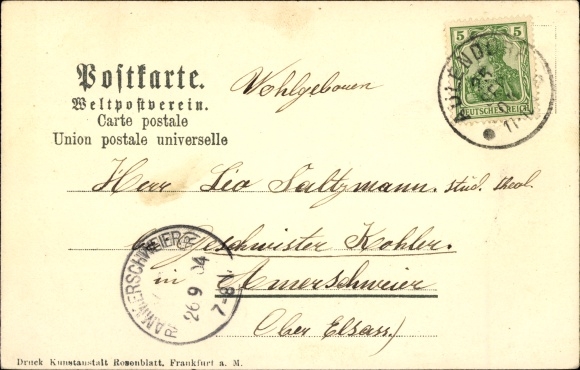 Postkarte.
Weltpostverein.
Carte postale
Union postale universelle
Wohlgeboren
5 5
DEUTSCHES REICH
AULENDORF
25
Herr Leo Saltzmann. stud. theol.
Geschwister Kohler.
in Amerschweier
(Ober Elsass.)
AMMERSCHWEIER
26 9 04
7-8 N
Druck Kunstanstalt Rosenblatt, Frankfurt a. M.